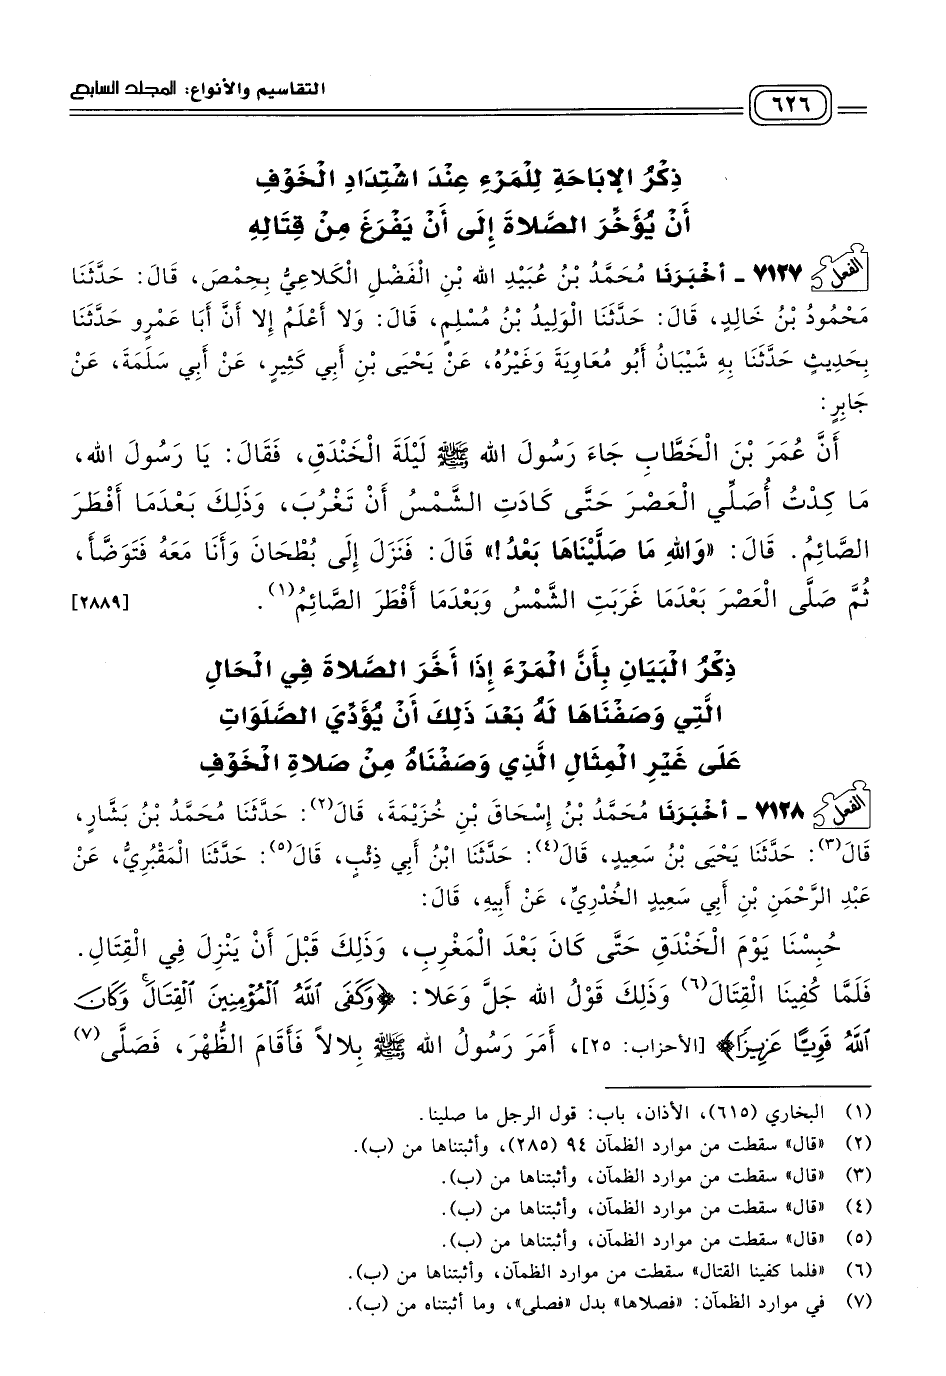 التقاسيم والأنواع: المجلد السابع
٦٢٦
ذِكْرُ الإبَاحَةِ لِلْمَرْءِ عِنْدَ اشْتِدَادِ الْخَوْفِ
أَنْ يُؤَخِّرَ الصَّلاةَ إِلَى أَنْ يَفْرَغَ مِنْ قِتَالِهِ
الفعل ٧١٢٧ - أَخْبَرَنَا مُحَمَّدُ بْنُ عُبَيْدِ الله بْنِ الْفَضْلِ الْكَلاعِيُّ بِحِمْصَ، قَالَ: حَدَّثَنَا
مَحْمُودُ بْنُ خَالِدٍ، قَالَ: حَدَّثَنَا الْوَلِيدُ بْنُ مُسْلِمٍ، قَالَ: وَلا أَعْلَمُ إِلا أَنَّ أَبَا عَمْرٍو حَدَّثَنَا
بِحَدِيثٍ حَدَّثَنَا بِهِ شَيْبَانُ أَبُو مُعَاوِيَةَ وَغَيْرُهُ، عَنْ يَحْيَى بْنِ أَبِي كَثِيرٍ، عَنْ أَبِي سَلَمَةَ، عَنْ
جَابِرٍ:
أَنَّ عُمَرَ بْنَ الْخَطَّابِ جَاءَ رَسُولَ الله ﷺ لَيْلَةَ الْخَنْدَقِ، فَقَالَ: يَا رَسُولَ الله،
مَا كِدْتُ أُصَلِّي الْعَصْرَ حَتَّى كَادَتِ الشَّمْسُ أَنْ تَغْرُبَ، وَذَلِكَ بَعْدَمَا أَفْطَرَ
الصَّائِمُ. قَالَ: «وَاللهِ مَا صَلَّيْنَاهَا بَعْدُ!» قَالَ: فَنَزَلَ إِلَى بُطْحَانَ وَأَنَا مَعَهُ فَتَوَضَّأَ،
ثُمَّ صَلَّى الْعَصْرَ بَعْدَمَا غَرَبَتِ الشَّمْسُ وَبَعْدَمَا أَفْطَرَ الصَّائِمُ(١). [٢٨٨٩]
ذِكْرُ الْبَيَانِ بِأَنَّ الْمَرْءَ إِذَا أَخَّرَ الصَّلاةَ فِي الْحَالِ
الَّتِي وَصَفْنَاهَا لَهُ بَعْدَ ذَلِكَ أَنْ يُؤَدِّيَ الصَّلَوَاتِ
عَلَى غَيْرِ الْمِثَالِ الَّذِي وَصَفْنَاهُ مِنْ صَلاةِ الْخَوْفِ
الفعل ٧١٢٨ - أَخْبَرَنَا مُحَمَّدُ بْنُ إِسْحَاقَ بْنِ خُزَيْمَةَ، قَالَ(٢): حَدَّثَنَا مُحَمَّدُ بْنُ بَشَّارٍ،
قَالَ(٣): حَدَّثَنَا يَحْيَى بْنُ سَعِيدٍ، قَالَ(٤): حَدَّثَنَا ابْنُ أَبِي ذِئْبٍ، قَالَ(٥): حَدَّثَنَا الْمَقْبُرِيُّ، عَنْ
عَبْدِ الرَّحْمَنِ بْنِ أَبِي سَعِيدٍ الْخُدْرِيِّ، عَنْ أَبِيهِ، قَالَ:
حُبِسْنَا يَوْمَ الْخَنْدَقِ حَتَّى كَانَ بَعْدَ الْمَغْرِبِ، وَذَلِكَ قَبْلَ أَنْ يَنْزِلَ فِي الْقِتَالِ.
فَلَمَّا كُفِينَا الْقِتَالَ(٦) وَذَلِكَ قَوْلُ الله جَلَّ وَعَلا: ﴿وَكَفَى ٱللَّهُ ٱلْمُؤْمِنِينَ ٱلْقِتَالَ ۚ وَكَانَ
ٱللَّهُ قَوِيًّا عَزِيزًا﴾ [الأحزاب: ٢٥]، أَمَرَ رَسُولُ الله ﷺ بِلالاً فَأَقَامَ الظُّهْرَ، فَصَلَّى(٧)
(١) البخاري (٦١٥)، الأذان، باب: قول الرجل ما صلينا.
(٢) «قال» سقطت من موارد الظمآن ٩٤ (٢٨٥)، وأثبتناها من (ب).
(٣) «قال» سقطت من موارد الظمآن، وأثبتناها من (ب).
(٤) «قال» سقطت من موارد الظمآن، وأثبتناها من (ب).
(٥) «قال» سقطت من موارد الظمآن، وأثبتناها من (ب).
(٦) «فلما كفينا القتال» سقطت من موارد الظمآن، وأثبتناها من (ب).
(٧) في موارد الظمآن: «فصلاها» بدل «فصلى»، وما أثبتناه من (ب).